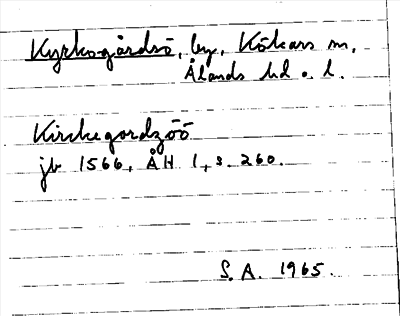 Kyrkogårdsö, by, Kökars sn,
Ålands hd o. l.
Kirckegordzöö
jb 1566, ÅH 1, s. 260.
S. A. 1965.